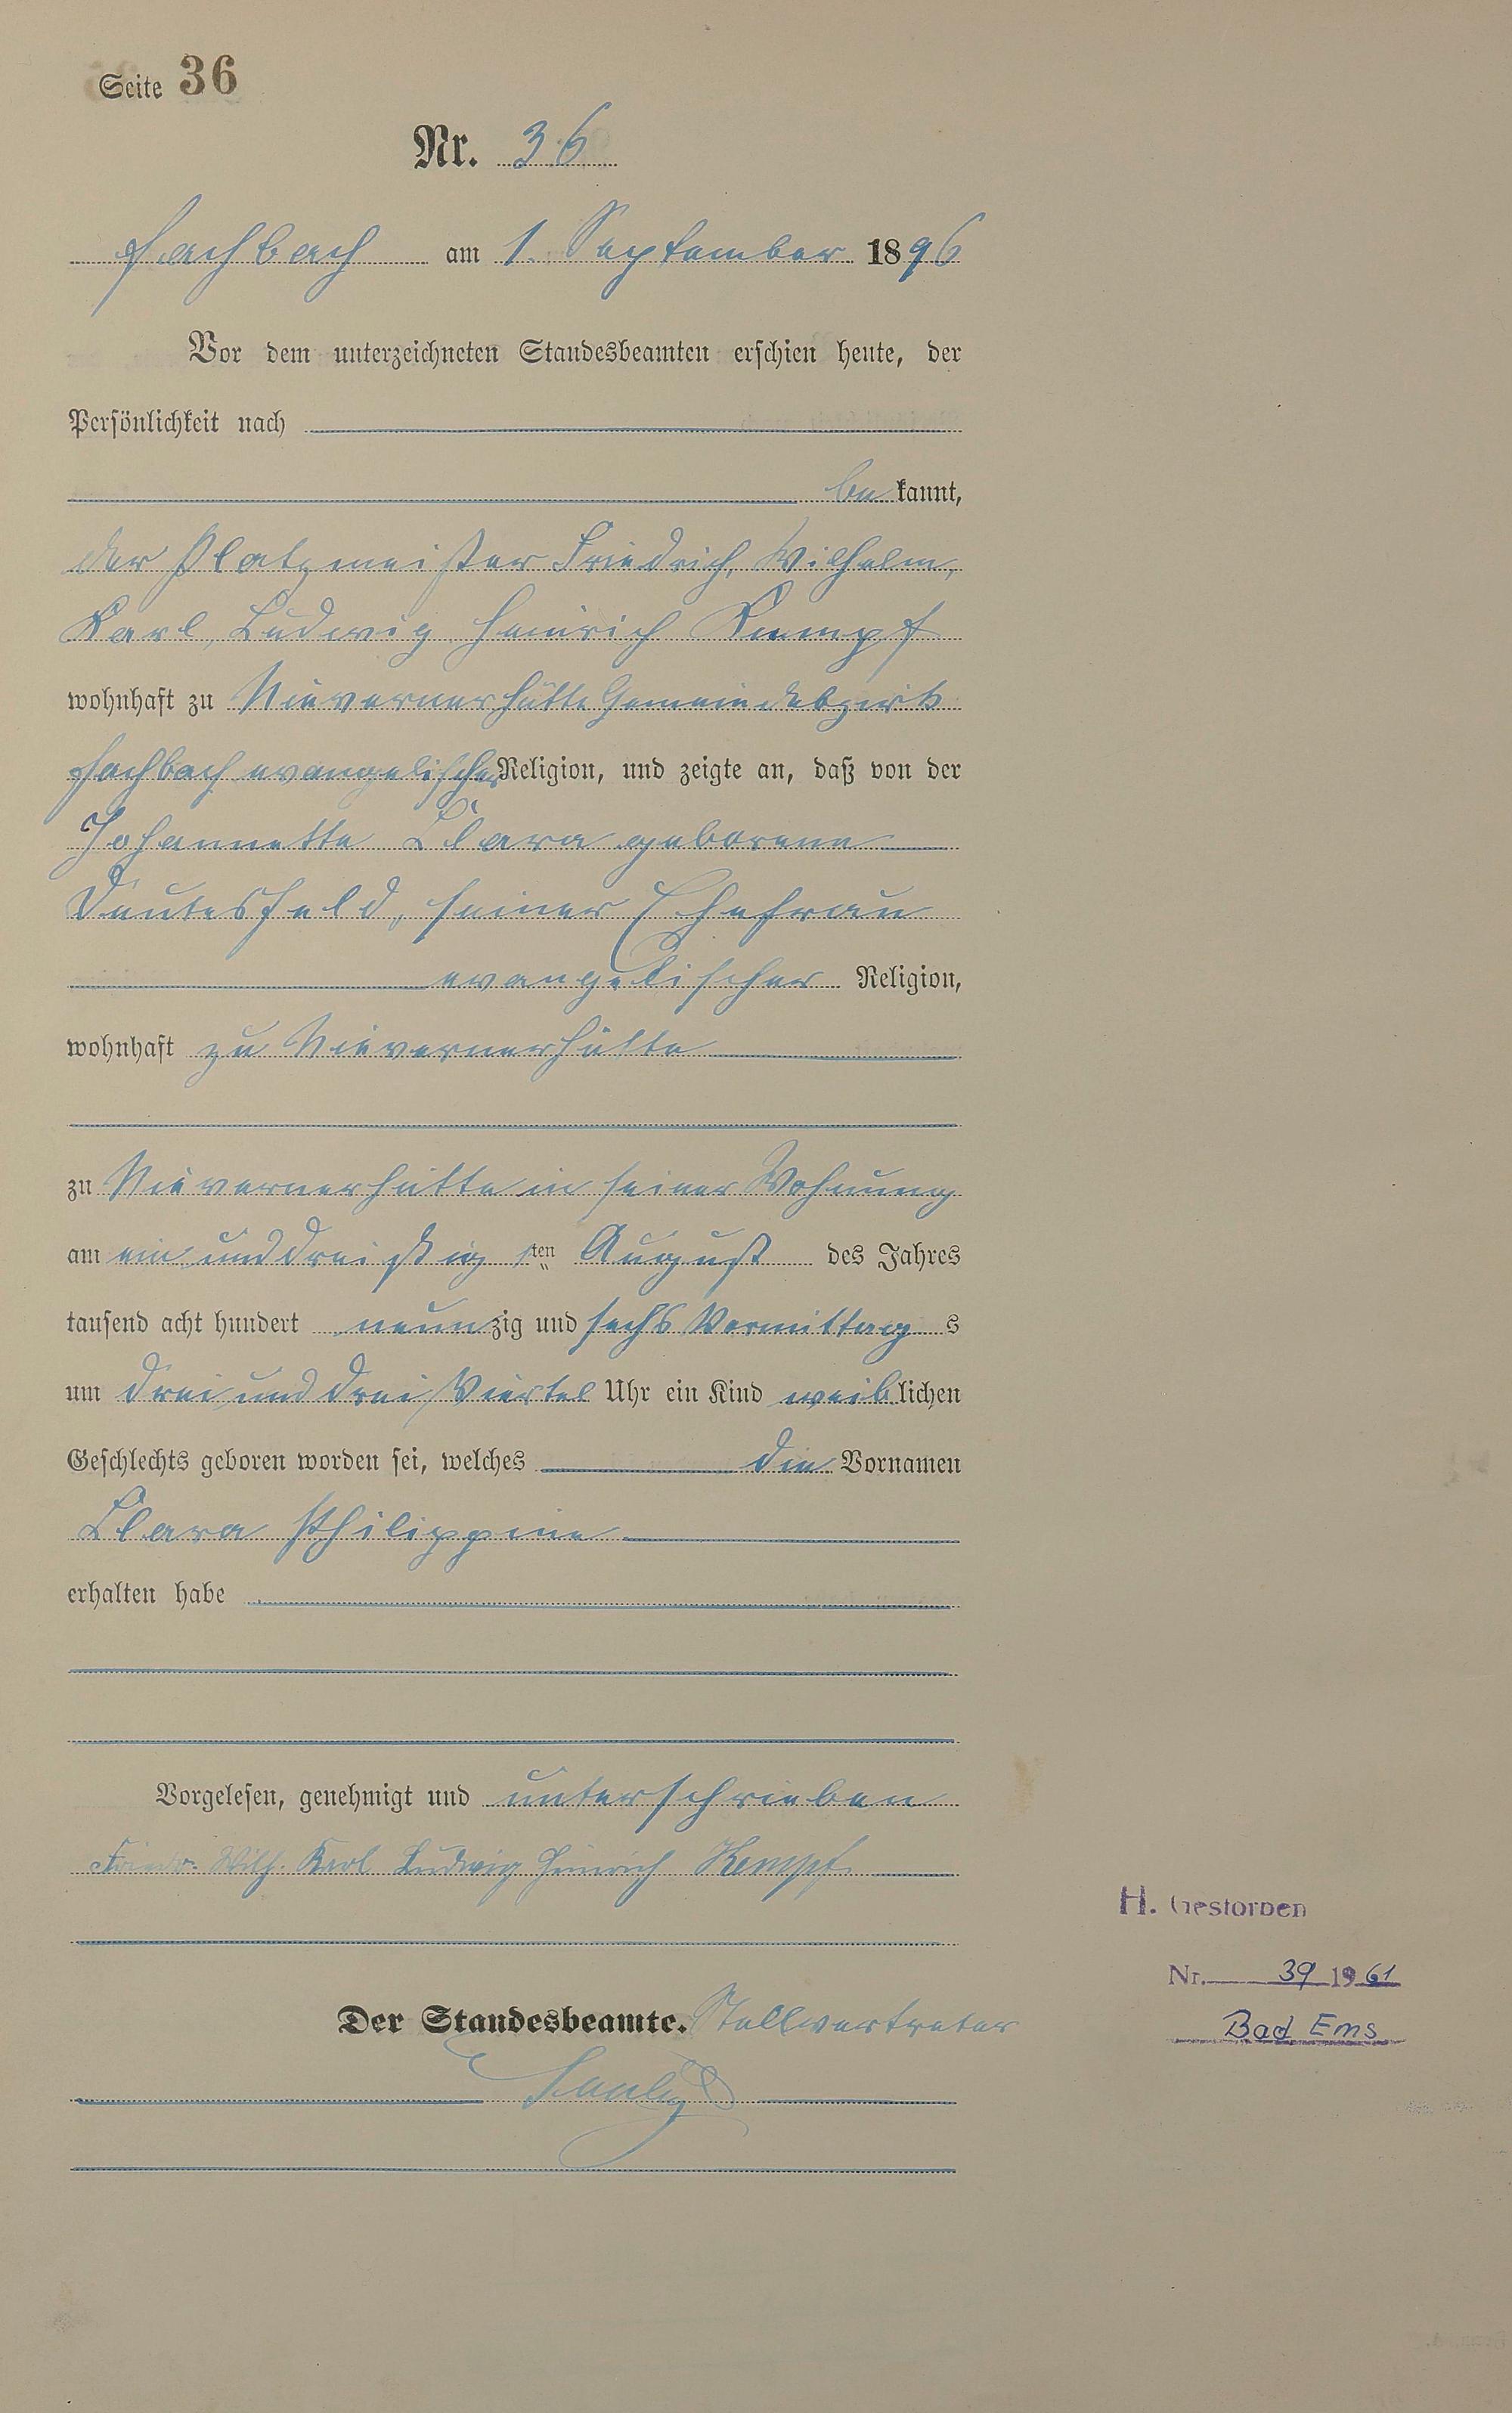 Seite 36
Nr. 36
Fachbach am 1. September 1896
Vor dem unterzeichneten Standesbeamten erschien heute, der
Persönlichkeit nach
be kannt,
der Platzmeister Friedrich, Wilhelm,
Karl, Ludwig Heinrich Kempf
wohnhaft zu Nievernerhütte Gemeindebezirk
Fachbach evangelischer Religion, und zeigte an, daß von der
Johannette Clara geborene
seiner Ehefrau
evangelischer Religion,
wohnhaft zu Nievernerhütte
zu Nievernerhütte in seiner Wohnung
am ein und dreißigsten August des Jahres
tausend acht hundert neunzig und sechs Vormittags
um drei und drei Viertel Uhr ein Kind weiblichen
Geschlechts geboren worden sei, welches die Vornamen
Clara Philippine
erhalten habe
Vorgelesen, genehmigt und unterschrieben
Friedr. Wilh. Karl Ludwig Heinrich Kempf
Der Standesbeamte. Stellvertreter
H. Gestorben
Nr. 39 1961
Bad Ems